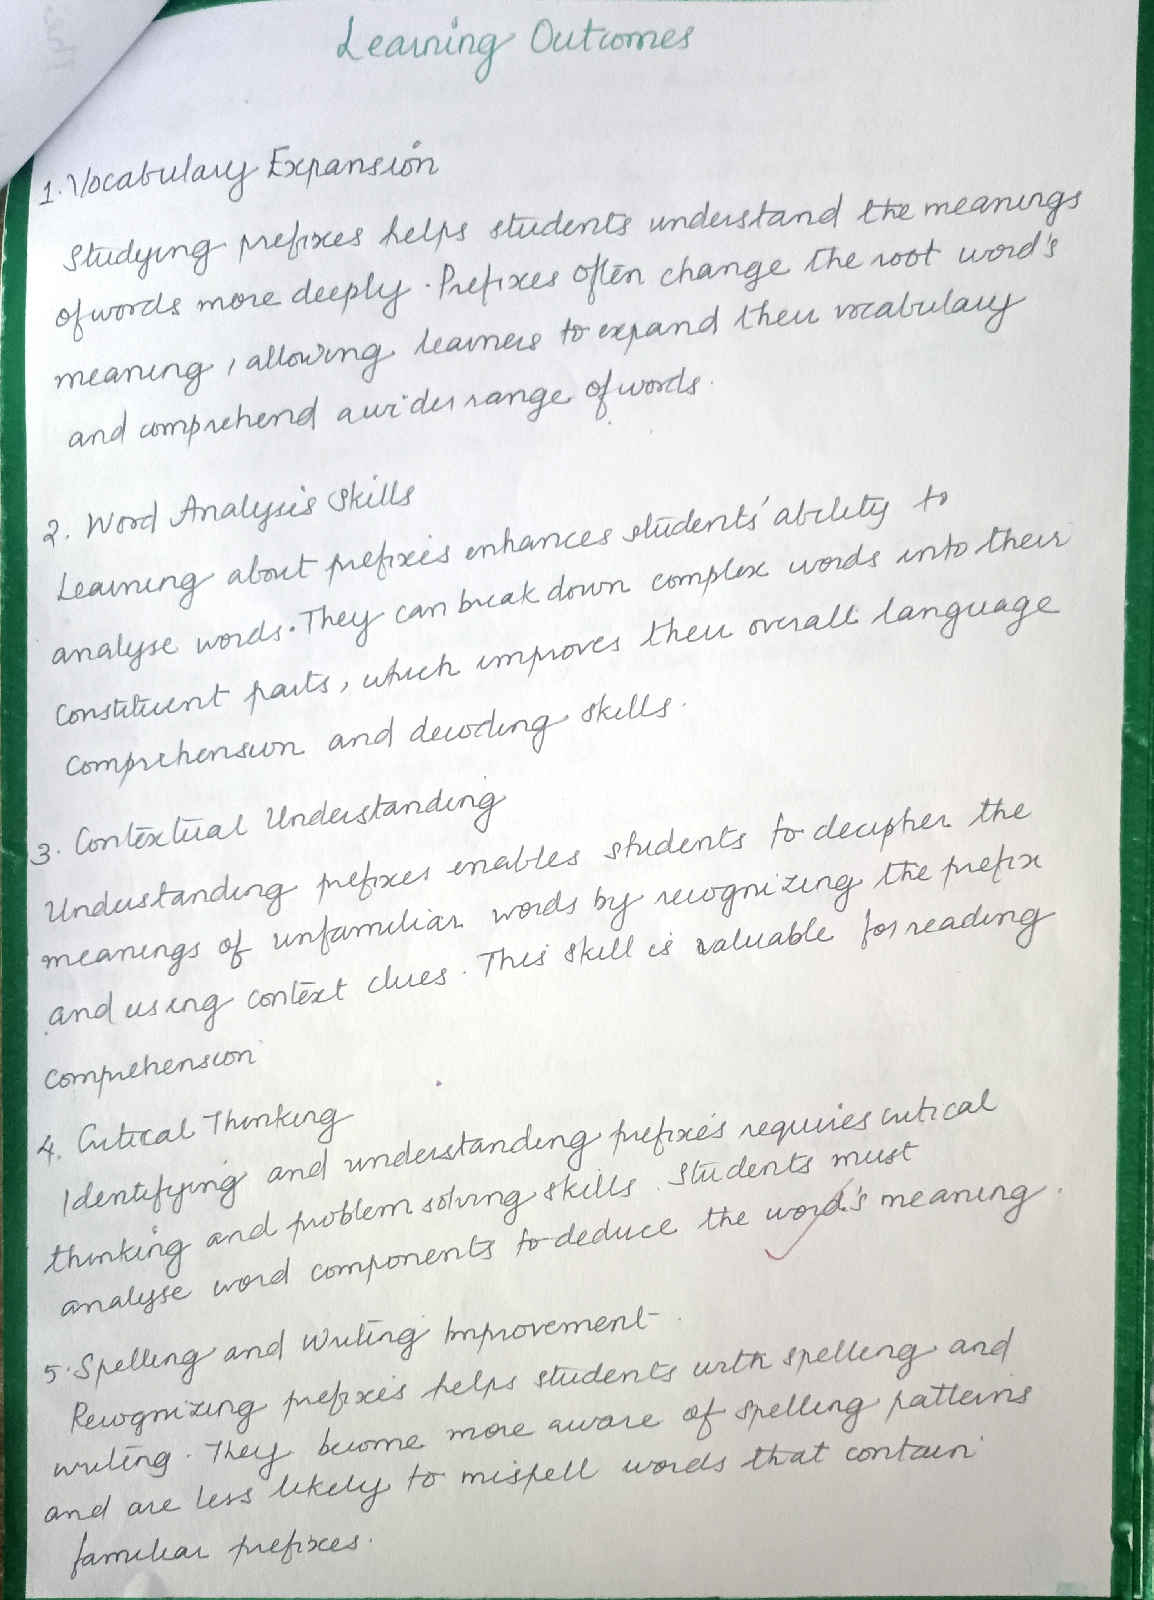 Learning Outcomes
1. Vocabulary Expansion
Studying prefixes helps students understand the meanings
of words more deeply. Prefixes often change the root word's
meaning, allowing learners to expand their vocabulary
and comprehend a wider range of words.
2. Word Analysis Skills
Learning about prefixes enhances students' ability to
analyse words. They can break down complex words into their
constituent parts, which improves their overall language
comprehension and decoding skills.
3. Contextual Understanding
Understanding prefixes enables students to decipher the
meanings of unfamiliar words by recognizing the prefix
and using context clues. This skill is valuable for reading
comprehension
4. Critical Thinking
Identifying and understanding prefixes requires critical
thinking and problem solving skills. Students must
analyse word components to deduce the word's meaning.
5. Spelling and Writing Improvement
Recognizing prefixes helps students with spelling and
writing. They become more aware of spelling patterns
and are less likely to mispell words that contain
familiar prefixes.